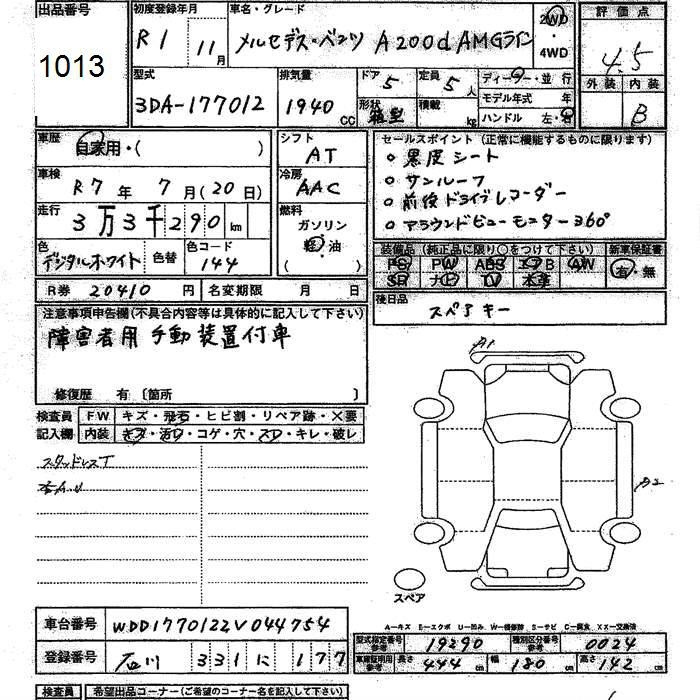 出品番号
1013
初度登録年月
R1 11月
車名・グレード
メルセデス・ベンツ A200d AMGライン
2WD
・
4WD
評価点
4.5
外装 内装
B
型式
3DA-177012
排気量
1940 CC
ドア 5
形状 箱型
定員 5人
積載 kg
ディーラー・並行
モデル年式 年
ハンドル 左・右
車歴
自家用・( )
車検
R7年 7月(20日)
走行
3万3千290 km
色
デジタルホワイト
色替
色コード
144
シフト
AT
冷房
AAC
燃料
ガソリン
軽・油
( )
セールスポイント (正常に機能するものに限ります)
○ 黒皮シート
○ サンルーフ
○ 前後ドライブレコーダー
○ アラウンドビューモニター360°
装備品 (純正品に限り○をつけて下さい)
PS PW ABS エアB AW
SR ナビ TV 本革
新車保証書
有・無
R券 20410 円
名変期限 月 日
後日品
スペアキー
注意事項申告欄(不具合内容等は具体的に記入して下さい)
障害者用手動装置付車
修復歴 有 〔箇所 〕
検査員
記入欄
FW キズ・飛石・ヒビ割・リペア跡・X要
内装 キズ・汚れ・コゲ・穴・スレ・キレ・破レ
スタッドレスT
A1
A2
スペア
A―キズ E―エクボ U―凹み W―補修跡 S―サビ C―腐食 XX―交換済
車台番号 WDD1770122V044754
登録番号 石川 331 に 177
型式指定番号
参考
19290
類別区分番号
参考
0024
車庫証明用
参考
長さ 444 cm 幅 180 cm 高さ 142 cm
検査員 希望出品コーナー(ご希望のコーナー名を記入下さい)